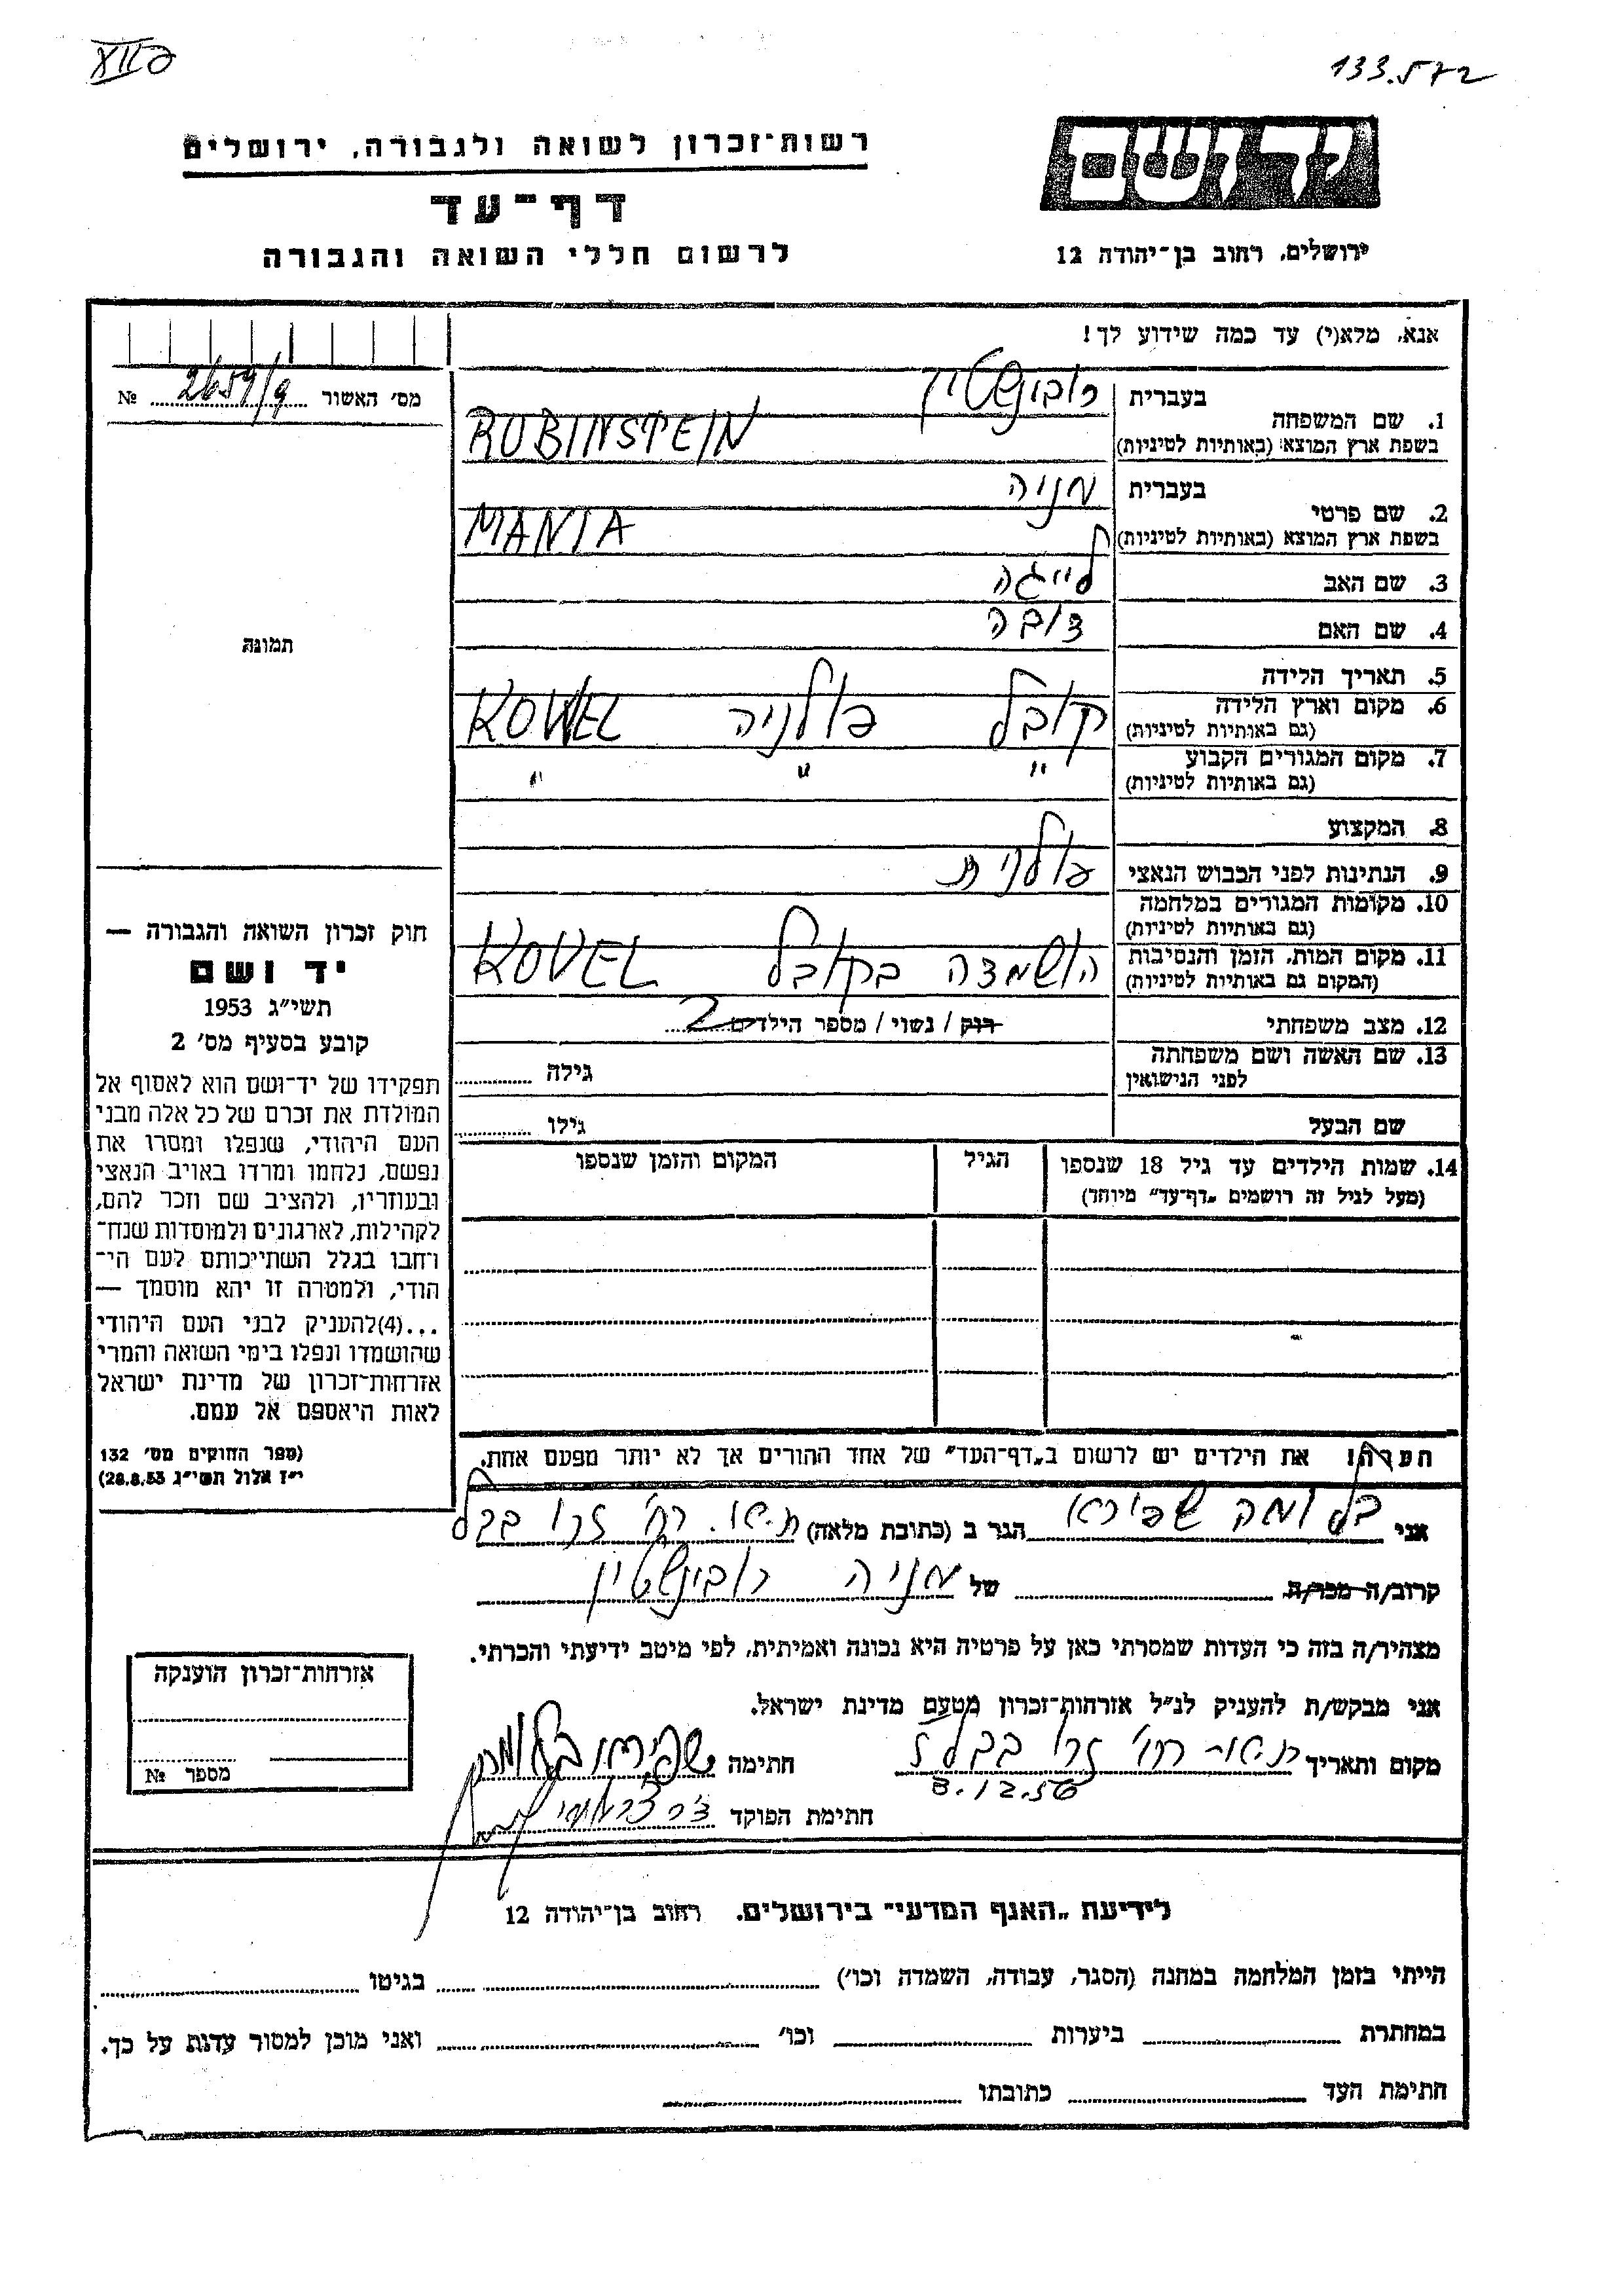 133.572
רשות־זכרון לשואה ולגבורה, ירושלים
יד ושם
דף־עד
לרשום חללי השואה והגבורה
ירושלים, רחוב בן־יהודה 12
אנא, מלא(י) עד כמה שידוע לך!
מס׳ האשור 2659/9 №
1. שם המשפחה
בעברית רובינשטין
בשפת ארץ המוצא (באותיות לטיניות) RUBINSTEIN
2. שם פרטי
בעברית מניה
בשפת ארץ המוצא (באותיות לטיניות) MANIA
3. שם האב לייגה
4. שם האם דובה
5. תאריך הלידה
6. מקום וארץ הלידה
(גם באותיות לטיניות) קובל פולניה KOWEL
7. מקום המגורים הקבוע
(גם באותיות לטיניות) " " "
8. המקצוע
9. הנתינות לפני הכבוש הנאצי פולנית
10. מקומות המגורים במלחמה
(גם באותיות לטיניות)
11. מקום המות, הזמן והנסיבות
(המקום גם באותיות לטיניות) הושמדה בקובל KOVEL
12. מצב משפחתי רוק / נשוי / מספר הילדים 2
13. שם האשה ושם משפחתה
לפני הנישואין גילה
שם הבעל גילו
14. שמות הילדים עד גיל 18 שנספו
(מעל לגיל זה רושמים „דף־עד" מיוחד)
הגיל
המקום והזמן שנספו
תמונה
חוק זכרון השואה והגבורה —
יד ושם
תשי״ג 1953
קובע בסעיף מס׳ 2
תפקידו של יד־ושם הוא לאסוף אל
המולדת את זכרם של כל אלה מבני
העם היהודי, שנפלו ומסרו את
נפשם, נלחמו ומרדו באויב הנאצי
ובעוזריו, ולהציב שם וזכר להם,
לקהילות, לארגונים ולמוסדות שנח־
רבו בגלל השתייכותם לעם הי־
הודי, ולמטרה זו יהא מוסמך —
...(4)להעניק לבני העם היהודי
שהושמדו ונפלו בימי השואה והמרי
אזרחות־זכרון של מדינת ישראל
לאות היאספם אל עמם.
(ספר החוקים מס׳ 132
י״ז אלול תשי״ג 28.8.53)
הערה! את הילדים יש לרשום ב„דף־העד" של אחד ההורים אך לא יותר מפעם אחת.
אני בלומה שפירא הגר ב (כתובת מלאה) רח׳ זרובבל
קרוב/ה מכר/ה של מניה רובינשטין
מצהיר/ה בזה כי העדות שמסרתי כאן על פרטיה היא נכונה ואמיתית, לפי מיטב ידיעתי והכרתי.
אני מבקש/ת להעניק לנ״ל אזרחות־זכרון מטעם מדינת ישראל.
מקום ותאריך רח׳ זרובבל חתימה שפירא בלומה
3.12.56
חתימת הפוקד
אזרחות־זכרון הוענקה
מספר №
לידיעת „האגף המדעי" בירושלים, רחוב בן־יהודה 12
הייתי בזמן המלחמה במחנה (הסגר, עבודה, השמדה וכו׳) בגיטו
במחתרת ביערות וכו׳ ואני מוכן למסור עדות על כך.
חתימת העד כתובתו